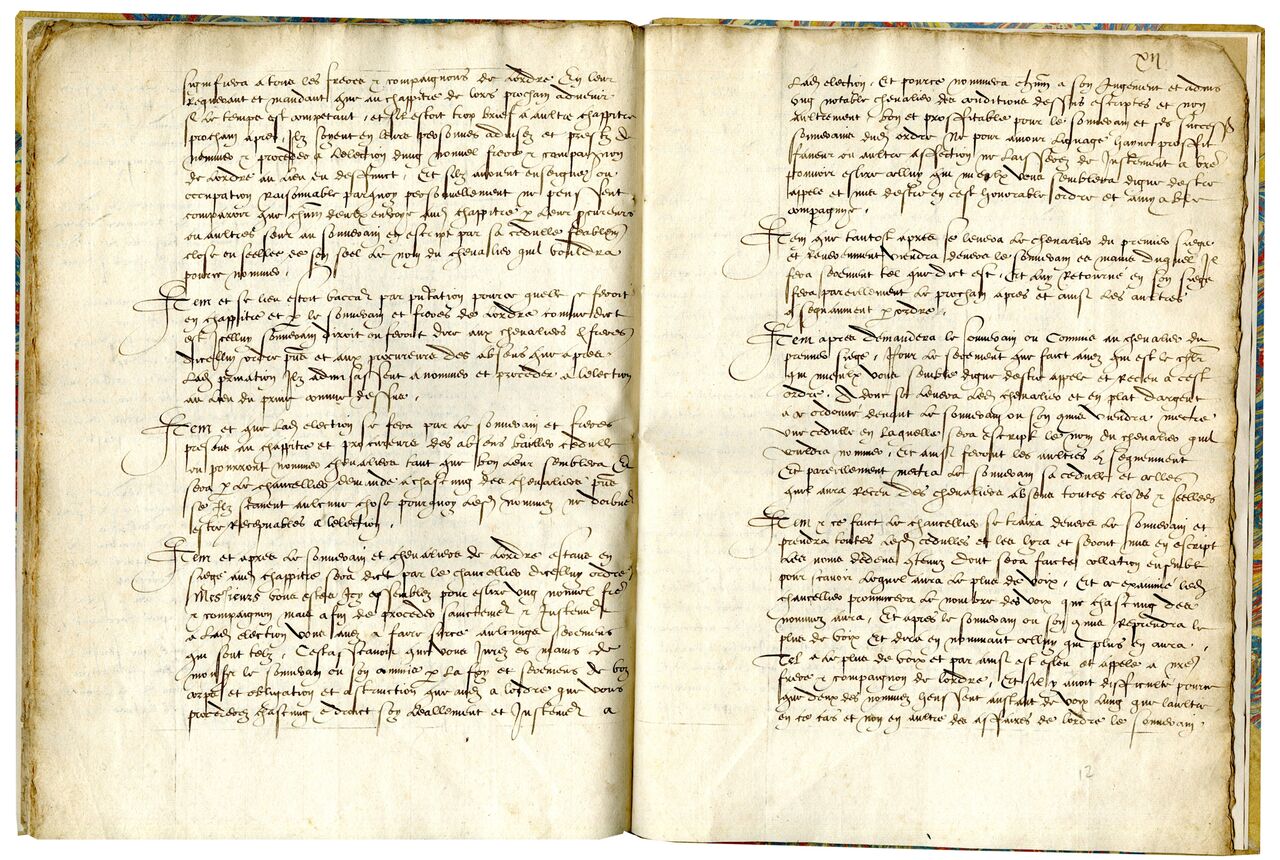 signifiera a tous les freres et compaignons de lordre En leur
Requerant et mandant que au chappitre de lors prochain advenir
se le temps est competant, et sil estoit trop brief a aultre chappitre
prochain apres, Ilz soyent en leurs personnes advisez et prestz de
nommer et proceder a lelection dung nouvel frere et compaignon
de lordre au lieu du deffunct, Et silz avoient ensoignes ou
occupation Raisonnable parquoy personnellement ne peussent
comparoir que chun devra envoyer audit chappitre p leur procureurs
ou aultres seur au souverain en escript par sa cedulle feablement
close ou seellee de son seel le nom du chevalier quil vouldra
pource nommer,
Item et se lieu estoit vaccant par privation pource quelle se feroit
en chappitre et p le souverain et freres de lordre comme dict
est Icelluy souverain diroit ou feroit dire aux chevaliers et freres
dicelluy ordre pns et aux procureurs des absens que apres
lad privation Ilz advisassent a nommer et proceder a lelection
au lieu du prive comme dessus,
Item et que lad election se fera par le souverain et freres
presens au chappitre et procureurs des absens cedulle
ou pourront nommer chevaliers tant que bon leur semblera Et
sera p le chancellier demande a chascung des chevaliers pns
se Ilz scavent aulcune chose pourquoy lesd nommez ne doibvent
estre Recepvables a lelection,
Item et apres le souverain et chevaliers de lordre estans en
siege aud chappitre sera dict par le chancellier dicelluy ordre
Messieurs vous estes Icy assemblez pour eslire ung nouvel frere
et compaignon mais afin de proceder sainctement et Justement
a lad election vous avez a faire surce aulcungs sermens
qui sont telz, Cestassavoir que vous Jurez es mains de
monsr le souverain ou son commis p la foy et sermens de voz
corps et obligation et astruction que avez a lordre que vous
procederez chascung endroict soy leallement et Justement a
XII
Lad election, Et pource nommera chun a son Jugement et advis
ung notable chevalier des conditions dessus escriptes et non
aultrement bon et prouffitable pour le souverain et ses successrs
souverains dudit ordre Ne pour amour lignage hayne prouffit
faveur ou aultre affection ne laisserez de Justement a vre
povoir eslire celluy qui mieulx vous semblera digne destre
appele et mis destre en cest honorable ordre et amyable
compaignie,
Item que tantost apres se levera le chevalier du premier siege
et Reveremment viendra devers le souverain es mains duquel Il
fera serement tel que dict est, Et luy Retourne en son siege
fera pareillement le prochain apres et ainsi les aultres
ensegamment p ordre,
Item apres demandera le souverain ou Commis au chevalier du
premier siege, Pour le serement que faict avez qui est le chlr
qui mieulx vous semble digne destre appele et Receu a cest
ordre, Adonc se levera led chevalier et en plat dargent
a ce ordonne devant le souverain ou son commis viendra mectre
une cedulle en laquelle sera escript le nom du chevalier quil
vouldra nommer, et ainsi feront les aultres ensegamment
Et pareillement metra le souverain sa cedulle et celles
quil aura Receu des chevaliers absens toutes closes et seellees
Item et ce faict le chancellier se traira devers le souverain et
prendra toutes lesd cedulles et les lyra et seront mis en escript
les noms dedens contenuz dont sera faicte collation ensemble
pour scavoir lequel aura le plus de voix, Et ce examine led
chancellier prononcera le nombre des voix que chascung des
nommez aura, Et apres le souverain ou son commis Reprendra le
plus de voix Et dira en nommant celluy qui plus en aura,
Tel a le plus de voix et par ainsi est esleu et appele a nre
frere et compaignon de lordre, Et sil y avoit difficulte pource
que deux des nommez heussent autant de voix lung que laultre
en ce cas et non en aultre des affaires de lordre le souverain
12